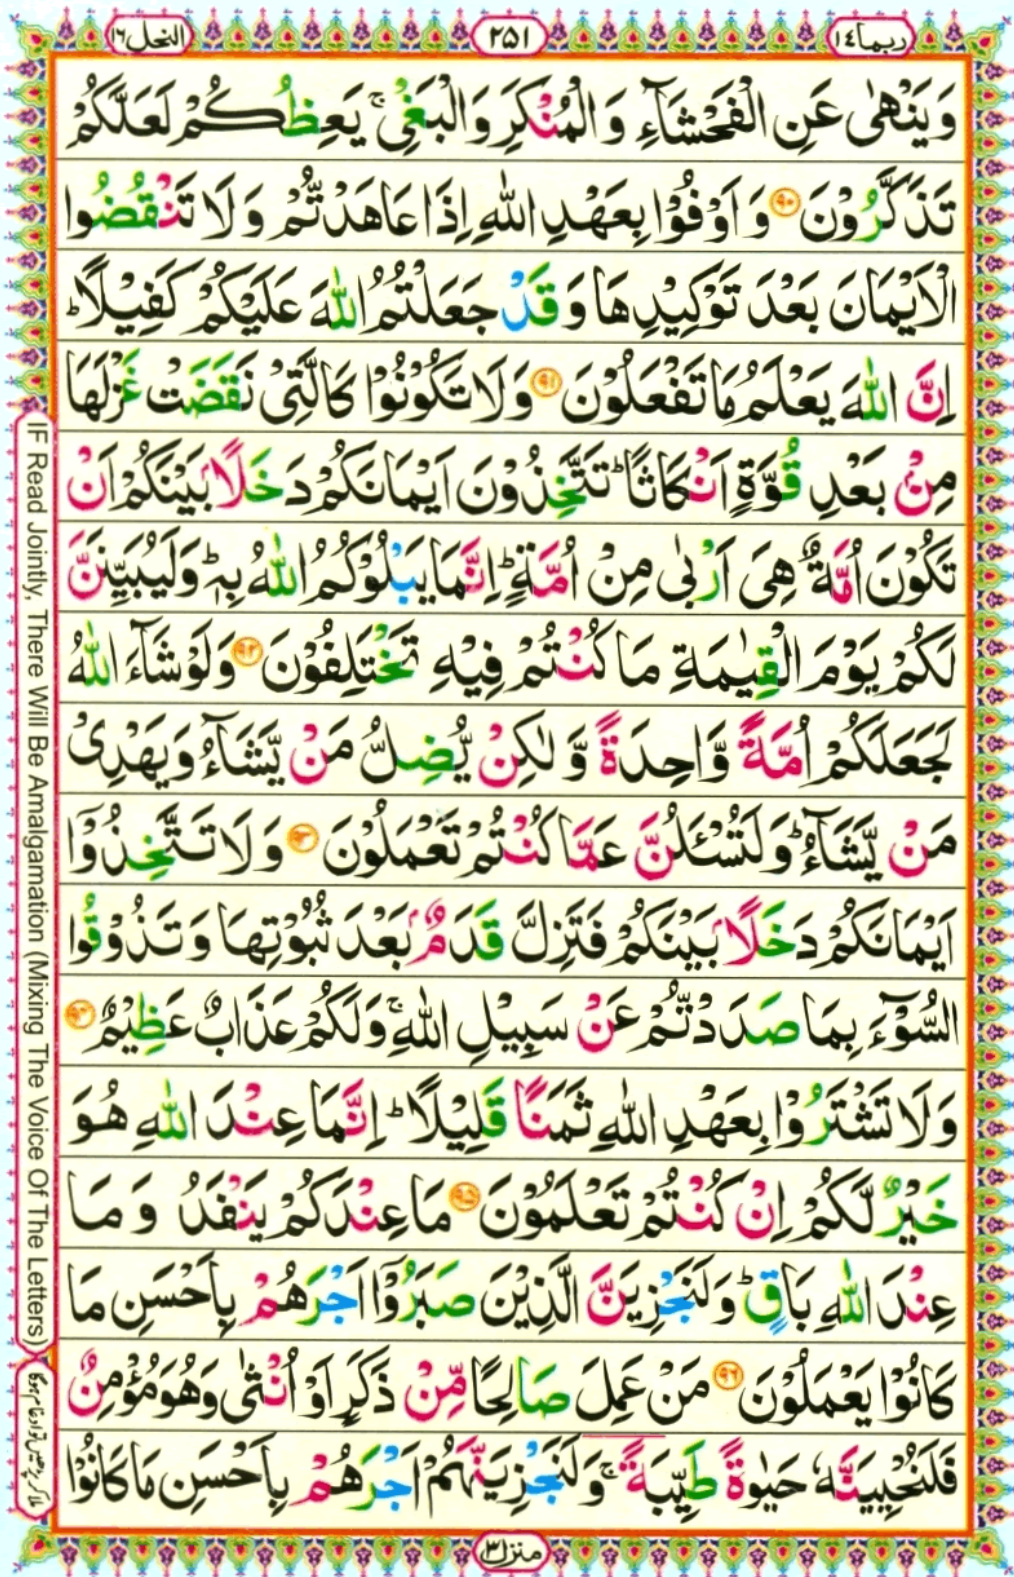 ربما ١٤
٢٥١
النحل ١٦
وَيَنْهٰى عَنِ الْفَحْشَآءِ وَ الْمُنْكَرِ وَالْبَغْيِ ۚ يَعِظُكُمْ لَعَلَّكُمْ
تَذَكَّرُوْنَ ٩٠ وَ اَوْفُوْا بِعَهْدِ اللّٰهِ اِذَا عَاهَدْتُّمْ وَ لَا تَنْقُضُوا
الْاَيْمَانَ بَعْدَ تَوْكِيْدِهَا وَ قَدْ جَعَلْتُمُ اللّٰهَ عَلَيْكُمْ كَفِيْلًا ؕ
اِنَّ اللّٰهَ يَعْلَمُ مَا تَفْعَلُوْنَ ٩١ وَلَا تَكُوْنُوْا كَالَّتِىْ نَقَضَتْ غَزْلَهَا
مِنْۢ بَعْدِ قُوَّةٍ اَنْكَاثًا ؕ تَتَّخِذُوْنَ اَيْمَانَكُمْ دَخَلًۢا بَيْنَكُمْ اَنْ
تَكُوْنَ اُمَّةٌ هِىَ اَرْبٰى مِنْ اُمَّةٍ ؕ اِنَّمَا يَبْلُوْكُمُ اللّٰهُ بِهٖ ؕ وَلَيُبَيِّنَنَّ
لَكُمْ يَوْمَ الْقِيٰمَةِ مَا كُنْتُمْ فِيْهِ تَخْتَلِفُوْنَ ٩٢ وَلَوْ شَآءَ اللّٰهُ
لَجَعَلَكُمْ اُمَّةً وَّاحِدَةً وَّ لٰكِنْ يُّضِلُّ مَنْ يَّشَآءُ وَيَهْدِىْ
مَنْ يَّشَآءُ ؕ وَلَتُسْئَلُنَّ عَمَّا كُنْتُمْ تَعْمَلُوْنَ ٩٣ وَ لَا تَتَّخِذُوْۤا
اَيْمَانَكُمْ دَخَلًۢا بَيْنَكُمْ فَتَزِلَّ قَدَمٌۢ بَعْدَ ثُبُوْتِهَا وَ تَذُوْقُوا
السُّوْٓءَ بِمَا صَدَدْتُّمْ عَنْ سَبِيْلِ اللّٰهِ ۚ وَلَكُمْ عَذَابٌ عَظِيْمٌ ٩٤
وَلَا تَشْتَرُوْا بِعَهْدِ اللّٰهِ ثَمَنًا قَلِيْلًا ؕ اِنَّمَا عِنْدَ اللّٰهِ هُوَ
خَيْرٌ لَّكُمْ اِنْ كُنْتُمْ تَعْلَمُوْنَ ٩٥ مَا عِنْدَكُمْ يَنْفَدُ وَ مَا
عِنْدَ اللّٰهِ بَاقٍ ؕ وَلَنَجْزِيَنَّ الَّذِيْنَ صَبَرُوْۤا اَجْرَهُمْ بِاَحْسَنِ مَا
كَانُوْا يَعْمَلُوْنَ ٩٦ مَنْ عَمِلَ صَالِحًا مِّنْ ذَكَرٍ اَوْ اُنْثٰى وَهُوَ مُؤْمِنٌ
فَلَنُحْيِيَنَّهٗ حَيٰوةً طَيِّبَةً ۚ وَلَنَجْزِيَنَّهُمْ اَجْرَهُمْ بِاَحْسَنِ مَا كَانُوْا
منزل ٣
IF Read Jointly, There Will Be Amalgamation (Mixing The Voice Of The Letters)
ملا کر پڑھیں تو ادغام ہوگا